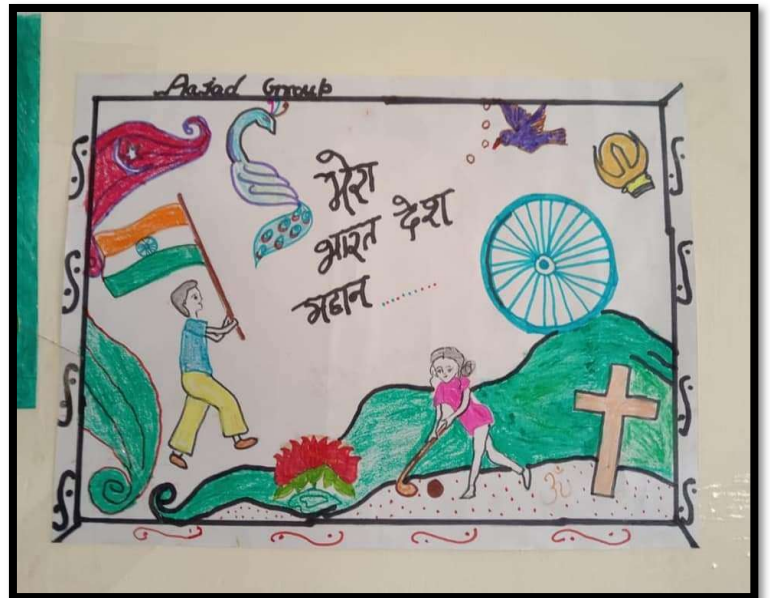 Aajad Group
मेरा
भारत देश
महान ..........
ॐ